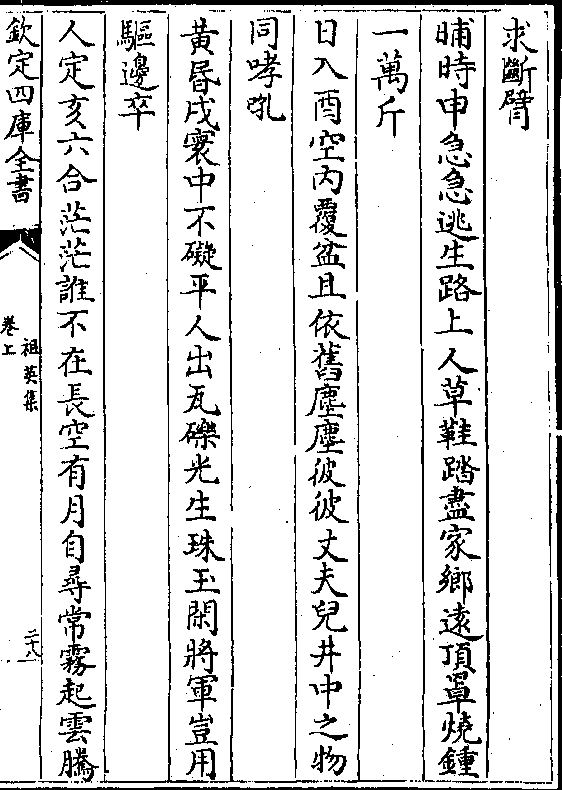 求斷臂
晡時申急急逃生路上人草鞋踏盡家鄉遠頂罩燒鍾
一萬斤
日入酉空内覆盆且依舊塵塵彼彼丈夫兒井中之物
同哮吼
黃昏戌寰中不礙平人出瓦礫光生珠玉閑將軍豈用
驅邊卒
人定亥六合茫茫誰不在長空有月自尋常霧起雲騰
欽定四庫全書
祖英集
卷上
二十八